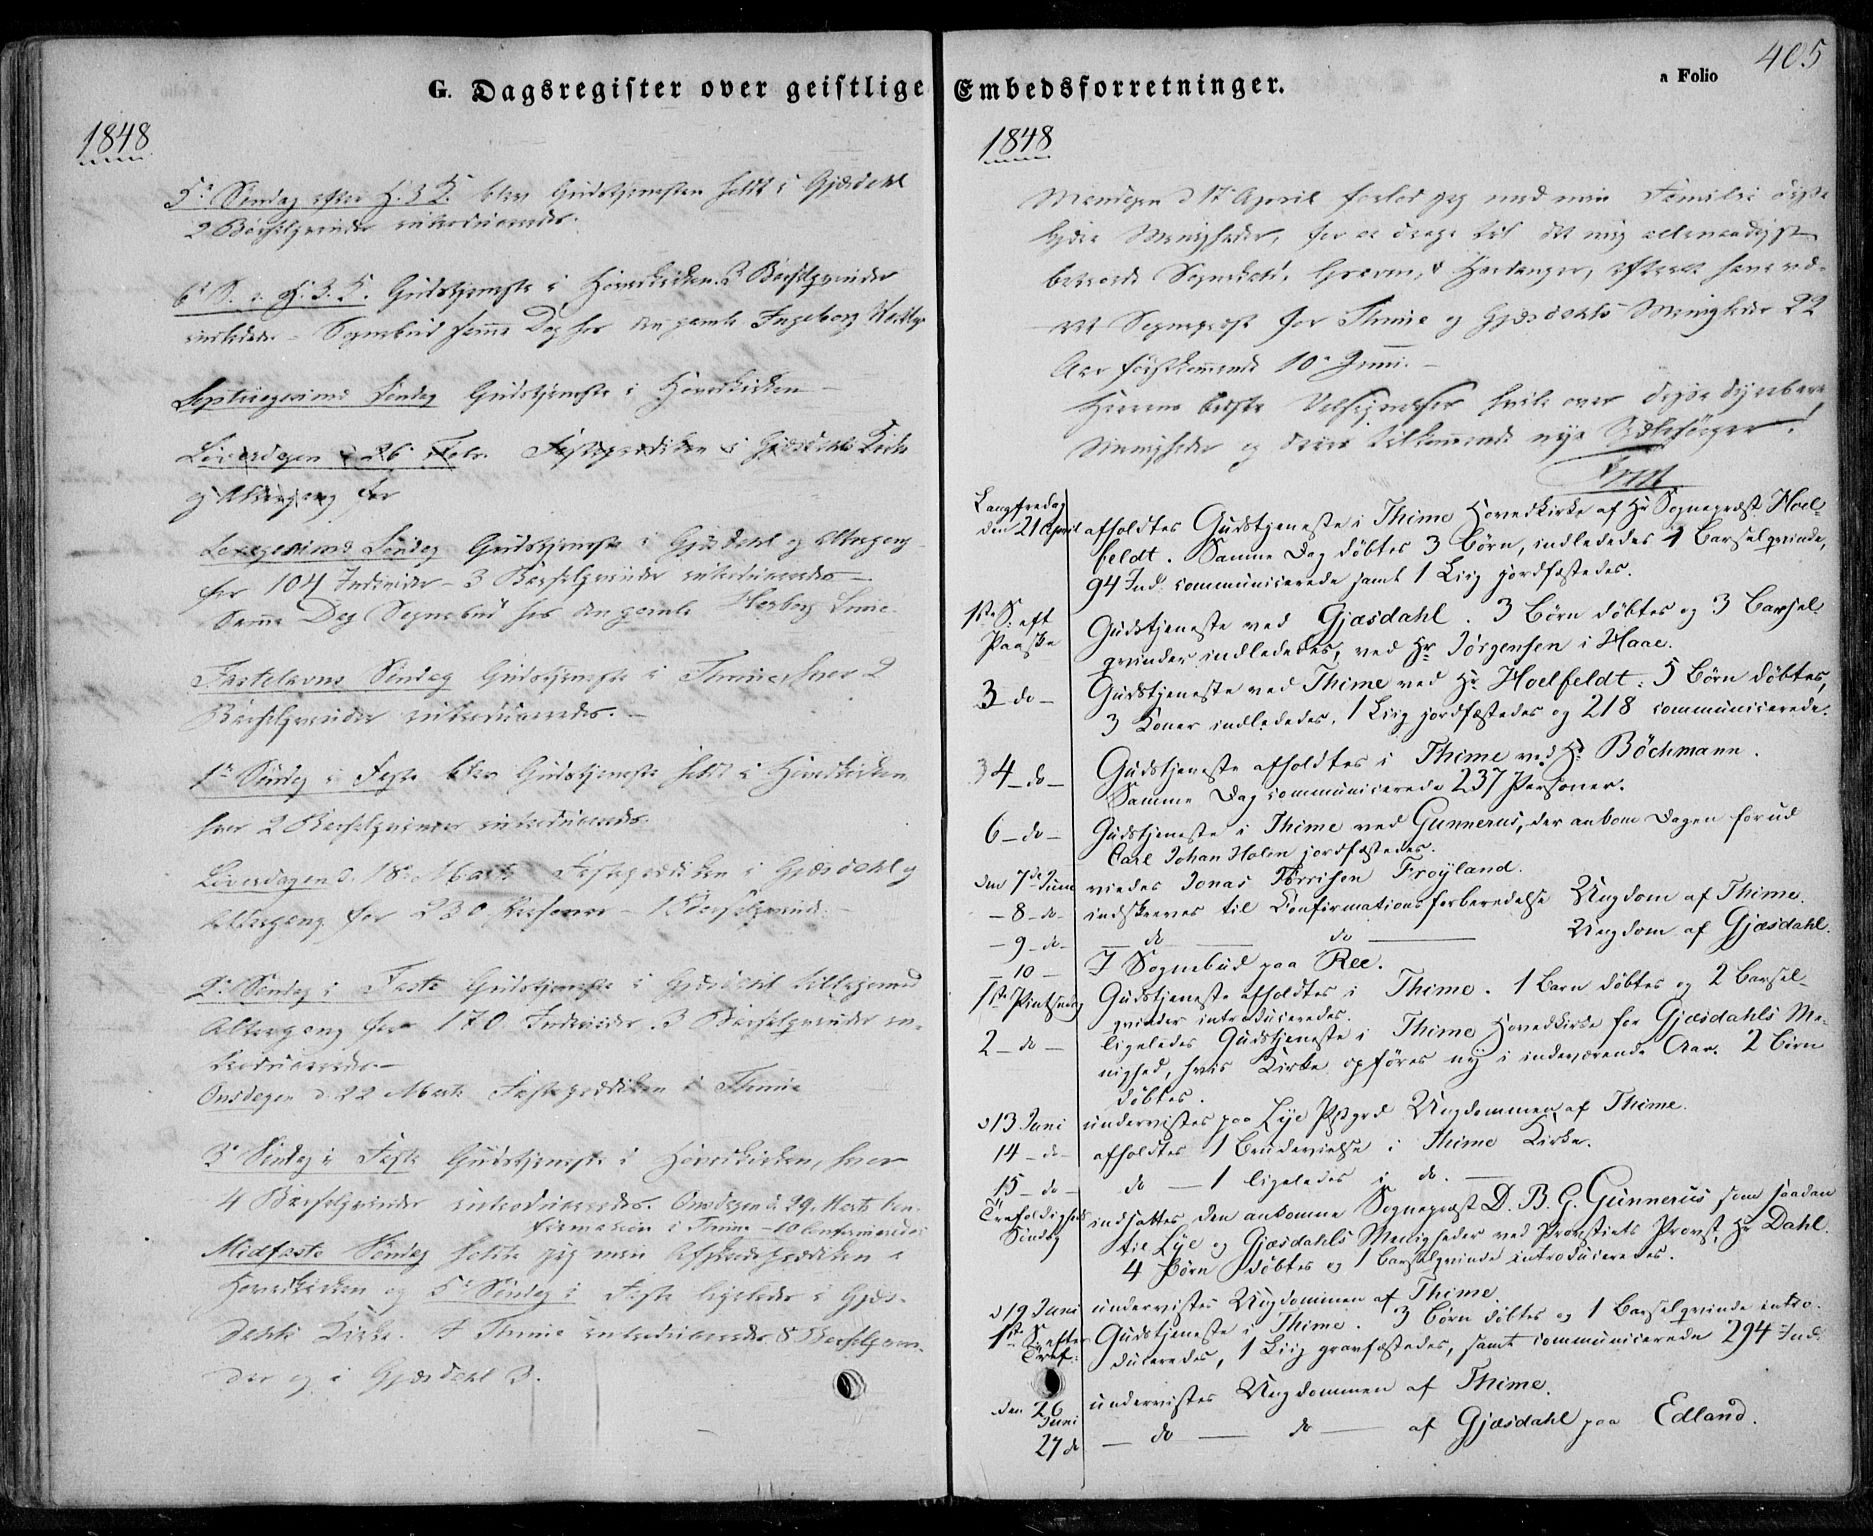 G. Dagsregister over geistlige
1848
5te Søndag efter H. 3 K. blev Gudstjenesten holdt i Gjæsdahl
2 Barselqvinder introduceredes.
6te S. e. H. 3. K. Gudstjeneste i Hovedkirken. 3 Barselqvinder
indledede - Sognebud samme Dag hos den gamle Ingeborg
Septuagesima Søndag Gudstjeneste i Hovedkirken -
Løverdagen d 26 Febr. Fasteprædiken i Gjæsdahls Kirke
og Altergang for
Sexagesima Søndag Gudstjeneste i Gjæsdahl og Altergang
for 104 Individer - 3 Barselqvinder introduceredes -
Samme Dag Sognebud hos den gamle
Fastelavns Søndag Gudstjeneste i Thime, hvor 2
Barselqvinder introduceredes. -
1te Søndag i Faste blev Gudstjeneste holdt i Hovedkirken
hvor 2 Barselqvinder introduceredes.
Løverdagen d. 18 Marts Fasteprædiken i Gjæsdahl og
Altergang for 230 Personer - 1 Barselqvinde. -
2. Søndag i Faste Gudstjeneste i Gjæsdahl tilligemed
Altergang for 170 Individer. 3 Barselqvinder in-
troduceredes -
Onsdagen d. 22 Marts Fasteprædiken i Thime
3e Søndag i Faste Gudstjeneste i Hovedkirken, hvor
4 Barselqvinder introduceredes. Onsdagen d. 29. Marts Con-
firmasion i Thime - 10 Confirmerede
Midfaste Søndag holdt jeg min Afskedsprædiken i
Hovedkirken og 5te Søndag i Faste ligeledes i Gjæs-
dahls Kirke. I Thime introduceredes 8 Barselqvin-
der og i Gjæsdahl 3.
Embedsforretninger.
a Folio 405
1848
Mandagen d 17 April forlod jeg med min Familie disse
kjære Menigheder, for at drage til det mig allernaadigst
betroede Sognekald, Graven, i Hardanger, efterat have væ-
ret Sognepræst for Thime og Gjæsdahls Menigheder 22
Aar førstkommende 10de Juni. -
Herrens bedste Velsignelser hvile over disse dyrebare
Menigheder og deres tilkommende nye Sjælesørger!
Langfredag
den 21 April afholdtes Gudstjeneste i Thime Hovedkirke af Hr Sognepræst Hoel-
feldt. Samme Dag døbtes 3 Børn, indlededes 1 Barselqvinde,
94 Ind. communicerede samt 1 Liig jordfæstedes.
1ste S. eft
Paaske Gudstjeneste ved Gjæsdahl. 3 Børn døbtes og 3 Barsel-
qvinder indlededes, ved Hr Jørgensen i Haae.
3 - do - Gudstjeneste ved Thime ved Hr Hoelfeldt. 5 Børn døbtes,
3 Koner indlededes, 1 Liig jordfæstedes og 218 communicerede.
4 - do - Gudstjeneste afholdtes i Thime ved Hr Bøchmann.
Samme Dag communicerede 237 Personer.
6 - do - Gudstjeneste i Thime ved Gunnerus, der ankom Dagen forud
Carl Johan Holen jordfæstedes.
den 7de Juni viedes Jonas Tørrisen Frøyland.
- 8 - do - indskreves til Confirmationsforberedelse Ungdom af Thime.
- 9 - do - - do - do - Ungdom af Gjæsdahl.
- 10 - I Sognebud paa Ree.
1ste Pintsedag Gudstjeneste afholdtes i Thime. 1 Barn døbtes og 2 Barsel-
qvinder introduceredes.
2 - do - ligeledes Gudstjeneste i Thime Hovedkirke for Gjæsdahls Me-
nighed, hvis Kirke opføres ny i indeværende Aar. 2 Børn
døbtes.
d 13 Juni undervistes paa Lye Pstgrd Ungdommen af Thime.
14 - do - afholdtes 1 Brudevielse i Thime Kirke.
15 - do - do - 1 ligeledes i do. -
Trefoldigheds
Søndag indsattes den ankomne Sognepræst D. B. G. Gunnerus, som saadan
til Lye og Gjæsdahls Menigheder ved Provstiets Provst, Hr Dahl.
4 Børn døbtes og 1 Barselqvinde introduceredes.
d 19 Juni undervistes Ungdommen af Thime.
1ste S. efter
Tref. Gudstjeneste i Thime. 3 Børn døbtes og 1 Barselqvinde intro-
duceredes, 1 Liig gravfæstedes, samt communicerede 294 Ind.
den 26
Juni undervistes Ungdommen af Thime.
27 do - do - do - af Gjæsdahl paa Edland.